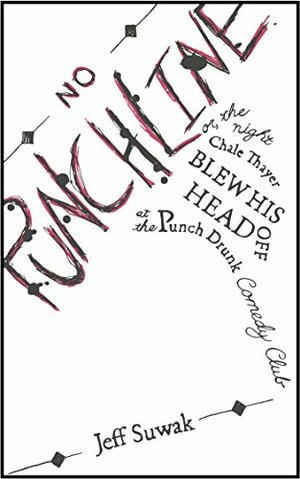 NO
PUNCHLINE
or the night
Chale Thayer
BLEW HIS
HEAD OFF
at the Punch Drunk
Comedy Club
Jeff Suwak